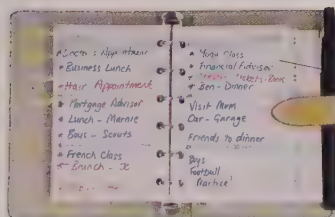 Appointment
* Business Lunch
* Hair Appointment
* Mortgage Advisor
* Lunch - Marnie
* Boys - Scouts
* French Class
* Brunch - x
* Yoga Class
* Financial Advisor
Tickets - Book
* Ben - Dinner
Visit Mum
Car - Garage
Friends to dinner
Boys
Football
Practice